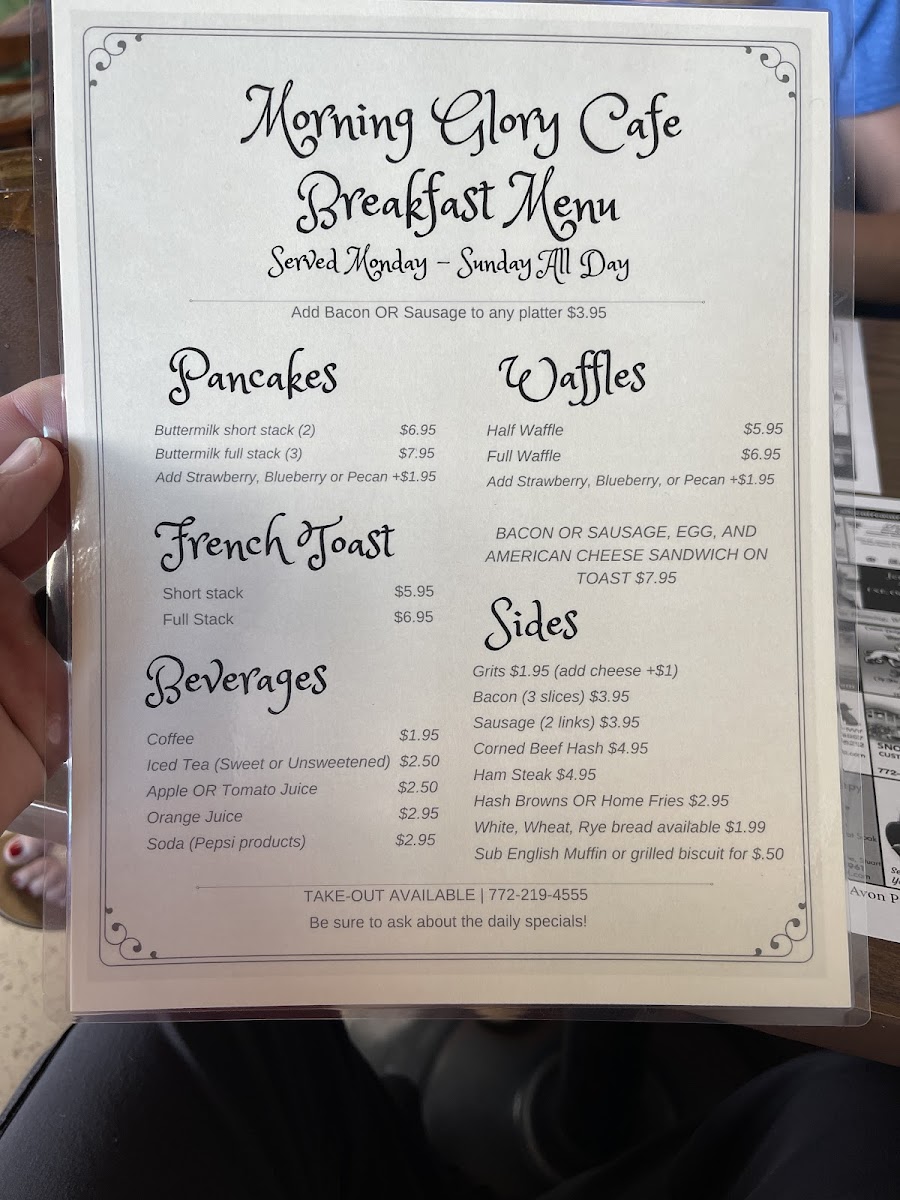 Morning Glory Cafe
Breakfast Menu
Served Monday – Sunday All Day
Add Bacon OR Sausage to any platter $3.95
Pancakes
Buttermilk short stack (2) $6.95
Buttermilk full stack (3) $7.95
Add Strawberry, Blueberry or Pecan +$1.95
French Toast
Short stack $5.95
Full Stack $6.95
Beverages
Coffee $1.95
Iced Tea (Sweet or Unsweetened) $2.50
Apple OR Tomato Juice $2.50
Orange Juice $2.95
Soda (Pepsi products) $2.95
Waffles
Half Waffle $5.95
Full Waffle $6.95
Add Strawberry, Blueberry, or Pecan +$1.95
BACON OR SAUSAGE, EGG, AND
AMERICAN CHEESE SANDWICH ON
TOAST $7.95
Sides
Grits $1.95 (add cheese +$1)
Bacon (3 slices) $3.95
Sausage (2 links) $3.95
Corned Beef Hash $4.95
Ham Steak $4.95
Hash Browns OR Home Fries $2.95
White, Wheat, Rye bread available $1.99
Sub English Muffin or grilled biscuit for $.50
TAKE-OUT AVAILABLE | 772-219-4555
Be sure to ask about the daily specials!
772-
Avon